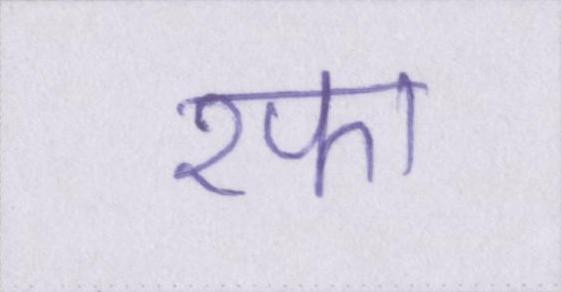 रफा